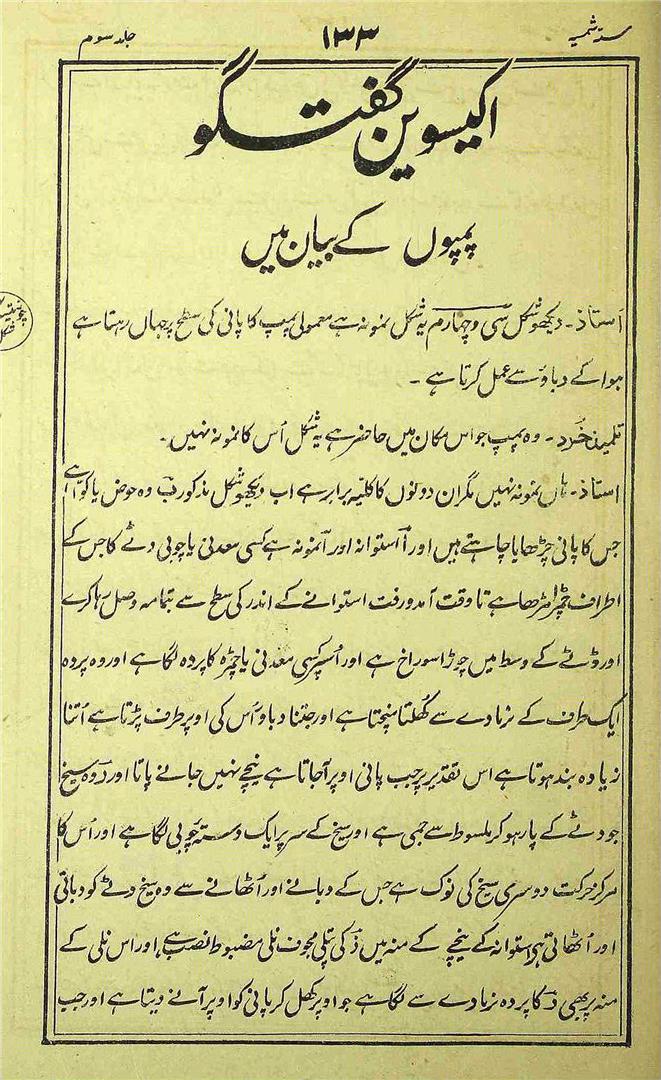 ستہ شمسیہ
۱۳۳
جلد سوم
اکیسویں گفتگو
پمپوں کے بیان میں
استاذ۔ دیکھو شکل سی و چہارم یہ شکل نمونہ ہے معمولی پمپ کا پانی کی سطح پر جہاں رہتا ہے
ہوا کے دباؤ سے عمل کرتا ہے۔
تلمیذ خُرد۔ وہ پمپ جو اس مکان میں حاضر ہے یہ شکل اُس کا نمونہ نہیں۔
استاذ۔ ہاں نمونہ نہیں مگر ان دونوں کا کلیہ برابر ہے اب دیکھو شکل مذکور ب وہ حوض یا کوا ہے
جس کا پانی چڑھایا چاہتے ہیں اور أ أ استوانہ اور آ نمونہ ہے کسی معدنی یا چوبی دٹے کا جس کے
اطراف چمڑا مڑھا ہے تا وقت آمد و رفت استوانے کے اندر کی سطح سے بتمامہ وصل رہا کرے
اور دٹے کے وسط میں چوڑا سوراخ ہے اور اُسپر کسی معدنی یا چمڑہ کا پردہ لگا ہے اور وہ پردہ
ایک طرف کے نرمادے سے کُھلتا منچتا ہے اور جتنا دباؤ اُس کی اوپر طرف پڑتا ہے اُتنا
زیادہ بند ہوتا ہے اس تقدیر پر جب پانی اوپر آجاتا ہے نیچے نہیں جانے پاتا اور د وہ سیخ
جو دٹے کے پار ہو کر ملسوط سے جمی ہے اور سیخ کے سر پر ایک دستہ چوبی لگا ہے اور اُس کا
مرکز حرکت دوسری سیخ کی نوک ہے جس کے دبانے اور اُٹھانے سے وہ سیخ دٹے کو دباتی
اور اُٹھاتی ہی استوانہ کے نیچے کے منہ میں ذ کی پتلی مجوف نلی مضبوط نصب ہے اور اس نلی کے
منہ پر بھی ذ کا پردہ نرمادے سے لگا ہے جو اوپر کھل کر پانی کو اوپر آنے دیتا ہے اور جب